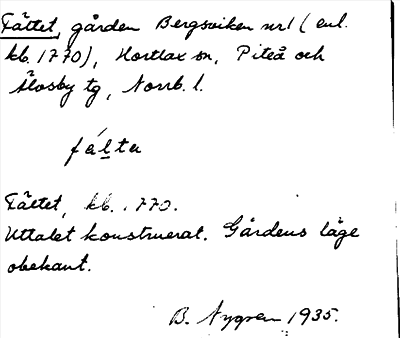 Fältet, gården Bergsviken nr 1 (enl.
kb. 1770), Hortlax sn, Piteå och
Älvsby tg, Norrb. l.
fält̲a
Fältet, kb. 1770.
Uttalet konstruerat. Gårdens läge
obekant.
B. Nygren 1935.